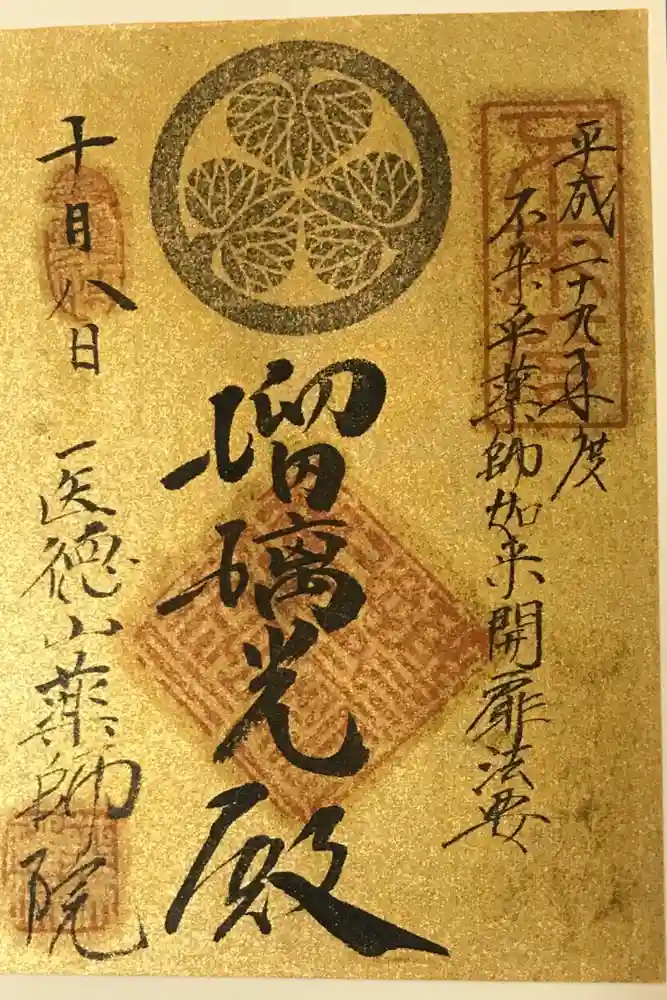 平成二十九年度
不来乎薬師如来開扉法要
瑠璃光殿
十月八日
医徳山薬師院